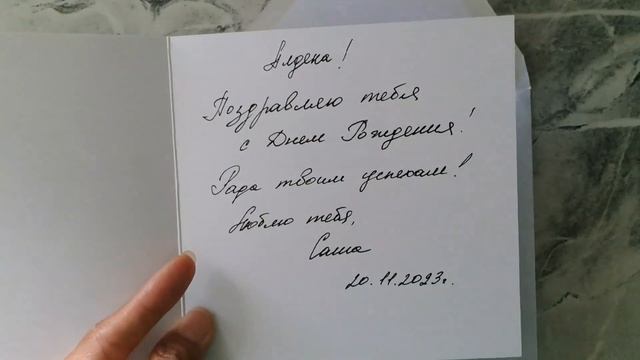 Алдена!
Поздравляю тебя
с Днем Рождения!
Рада твоим успехам!
Люблю тебя,
Саша
20.11.2023г.